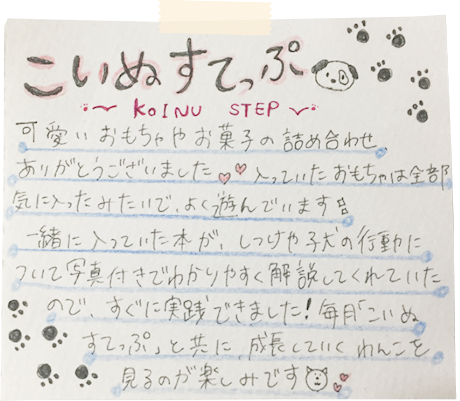 こいぬすてっぷ
KOINU STEP
可愛いおもちゃやお菓子の詰め合わせ、
ありがとうございました 入っていたおもちゃは全部
気に入ったみたいで、よく遊んでいます!
一緒に入っていた本が、しつけや子犬の行動に
ついて写真付きでわかりやすく解説してくれていた
ので、すぐに実践できました!毎月「こいぬ
すてっぷ」と共に成長していくわんこを
見るのが楽しみです